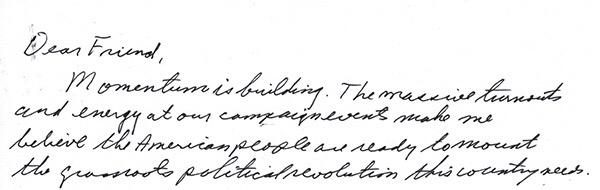 Dear Friend,
Momentum is building. The massive turnouts
and energy at our campaign events make me
believe the American people are ready to mount
the grassroots political revolution this country needs.